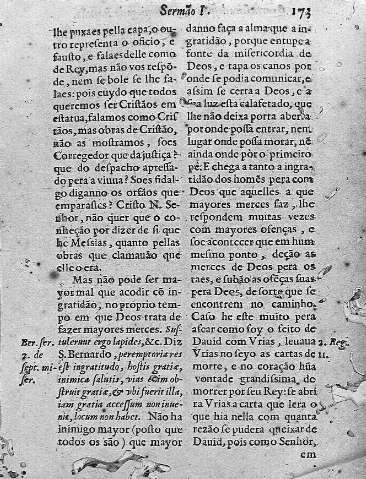 Sermão I. 173
lhe puxaes pella capa, o ou-
tro representa o oficio, e
fausto, e falaes delle como
de Rey, mas não vos respõ-
de, nem se bole se lhe fa-
laes: pois cuydo que todos
queremos ser Cristãos em
estatua, falamos como Cris-
tãos, mas obras de Cristão,
não as mostramos, soes
Corregedor que da justiça?
que do despacho apressa-
do pera a viuua? Soes fidal-
go diganno os orfãos que
emparastes? Cristo N. Se-
nhor, não quer que o co-
nheção por dizer si que
he Messias, quanto pellas
obras que clamauão que
elle o era.
Mas não pode ser ma-
yor mal que acodir cõ in-
gratidão, no proprio tem-
po em que Deos trata de
fazer mayores merces. Sus-
tulerunt ergo lapides, &c. Diz
S. Bernardo, peremptoria res
est ingratitudo, hostis gratiæ,
inimica salutis, vias enim ob-
struit gratiæ, & vbi fuerit illa,
iam gratia accessum non inue-
nit, locum non habet. Não ha
inimigo mayor (posto que
todos os são) que mayor
Ber. ser.
2. de
sept. mi-
ser.
danno faça a alma que a in-
gratidão, porque entupe a
fonte da misericordia de
Deos, e tapa os canos por
onde se podia comunicar, e
assim se certa a Deos, e a
sua luz esta calafetado, que
lhe não deixa porta aberta
por onde possa entrar, nem
lugar onde possa morar, nẽ
ainda onde põr o primeiro
pé: E chega a tanto a ingra-
tidão dos homẽs pera com
Deos que aquelles a que
mayores merces faz, lhe
respondem muitas vezes
com mayores ofenças, e
soe acontecer que em hum
mesmo ponto, deção as
merces de Deos pera os
taes, e subão as ofeças suas
pera Deos, de sorte que se
encontrem no caminho.
Caso he este muito pera
ascar como soy o feito de
Dauid com Vrias, leuaua
Vrias no seyo as cartas de
morte, e no coração hũa
vontade grandissima de
morrer por seu Rey: se abri
ra Vrias a carta que lera o
que hia nella com quanta
rezão se pudera queixar de
Dauid, pois como Senhor,
em
2. Reg.
11.